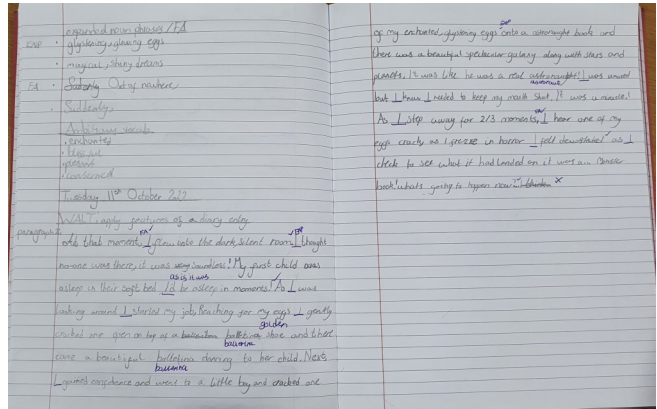 expanded noun phrases / FA
ENP · glystening, glowing eggs
· magical, shiny dreams
FA · Suddenly Out of nowhere
· Suddenly,
Ambitious vocab
· enchanted
· blissful
Tuesday 11th October 2022
WALT: apply features of a diary entry
paragraph 2
At that moment, I flew into the dark, silent room. I thought
no-one was there, it was very soundless! My first child was
as is it was
asleep in their soft bed. I'd be asleep in moments! As I was
looking around I started my job. Reaching for my eggs I gently
golden
cracked one open on top of a ballerina shoe and there
ballerina
came a beautiful ballerina dancing to her child. Next,
ballerina
I gained confidence and went to a little boy and cracked one
ENP
of my enchanted, glystening eggs onto a astronaught book and
there was a beautiful spectacular galaxy along with stars and
planets. It was like he was a real astronaught! I was
astronaut
but I knew I needed to keep my mouth shut. It was a miracle!
As I step away for 2/3 moments, I hear one of my
eggs crack as I freeze in horror. I fell devastated as I
check to see what it had landed on it was a... monster
book! whats going to happen now...